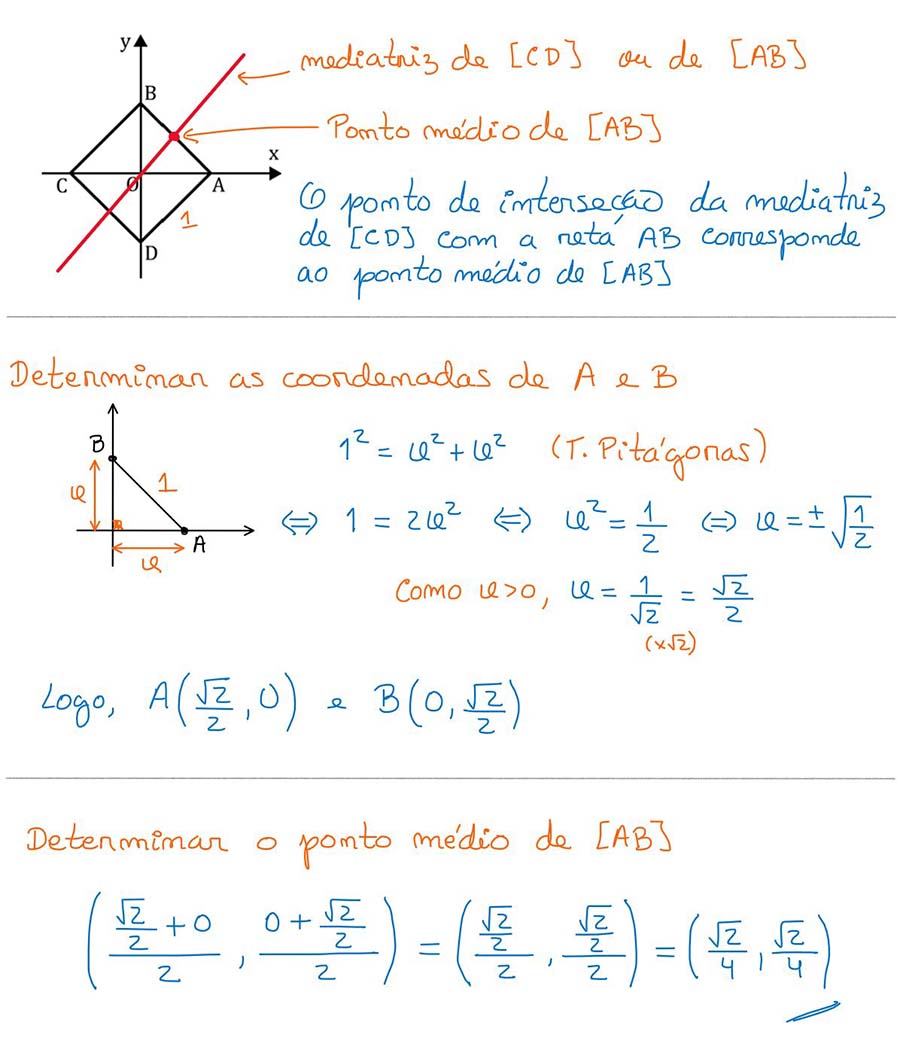 y
B
C
O
A
x
1
D
mediatriz de [CD] ou de [AB]
Ponto médio de [AB]
O ponto de interseção da mediatriz
de [CD] com a reta AB corresponde
ao ponto médio de [AB]
Determinar as coordenadas de A e B
B
a
1
A
a
1² = a² + a² (T. Pitágoras)
⇔ 1 = 2a² ⇔ a² = 1/2 ⇔ a = ± √(1/2)
Como a > 0, a = 1/√2 = √2/2
(×√2)
Logo, A(√2/2, 0) e B(0, √2/2)
Determinar o ponto médio de [AB]
((√2/2 + 0)/2, (0 + √2/2)/2) = ((√2/2)/2, (√2/2)/2) = (√2/4, √2/4)